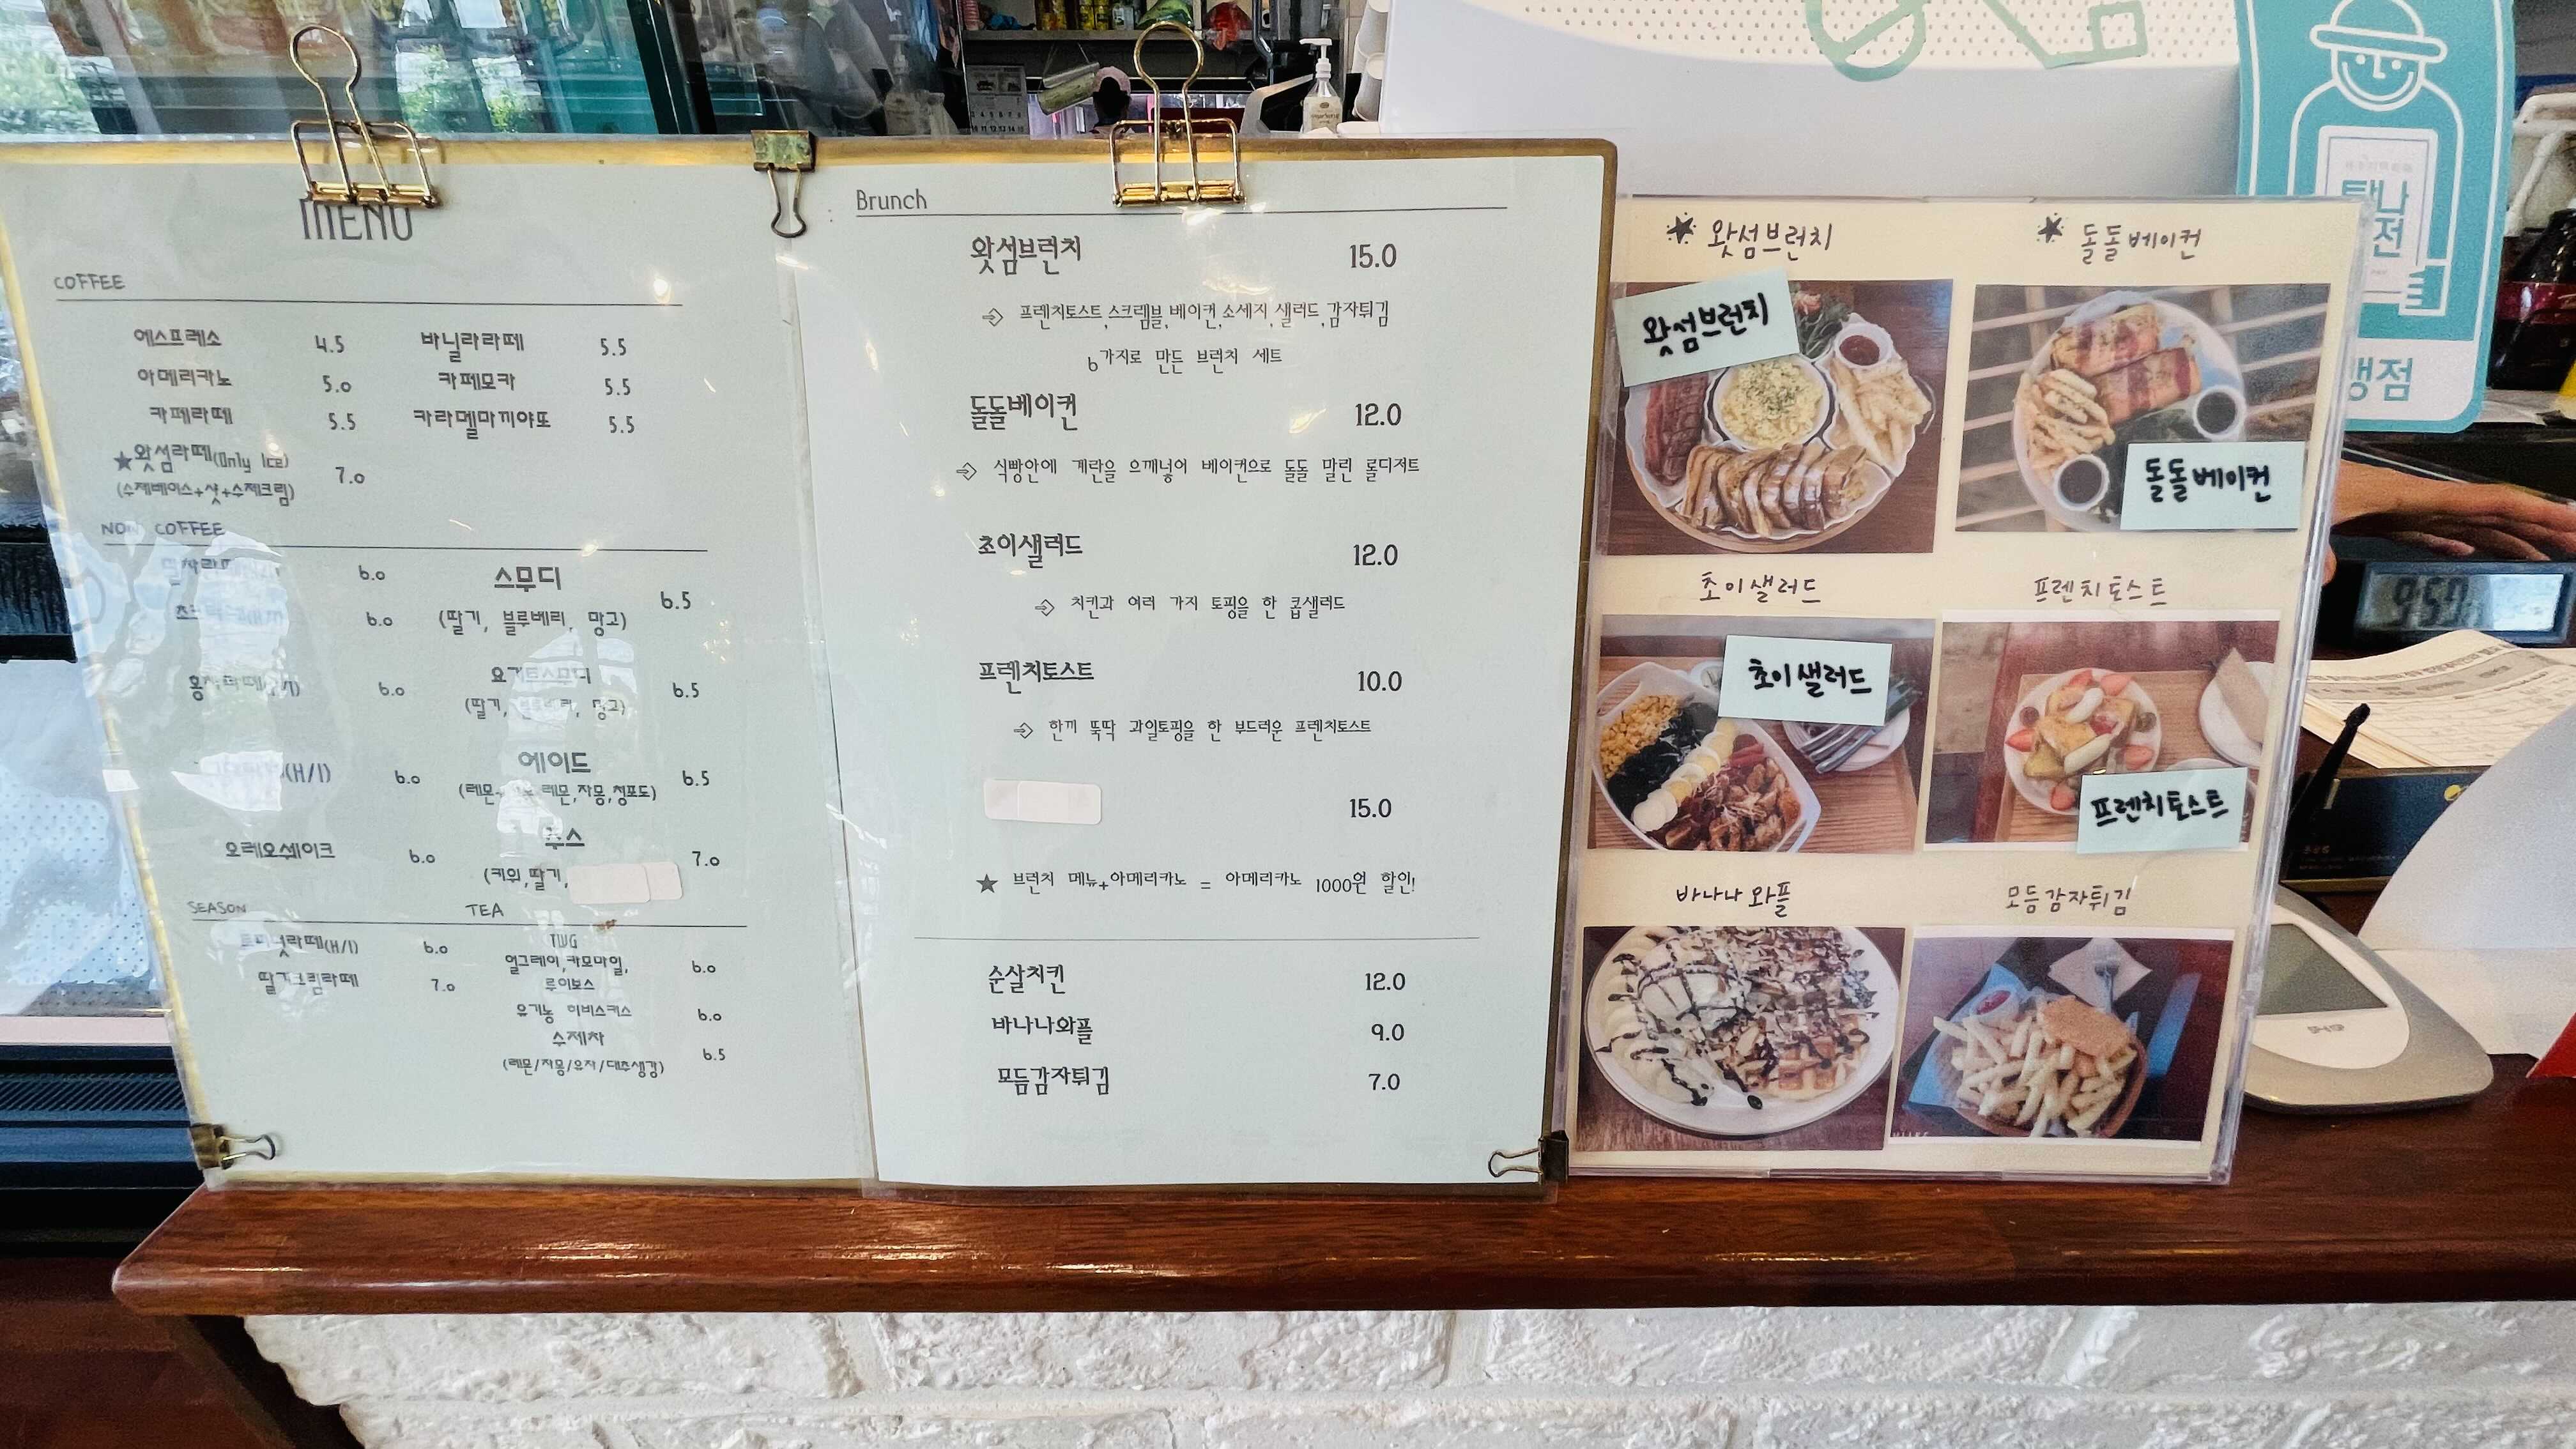 MENU
COFFEE
에스프레소 4.5 바닐라라떼 5.5
아메리카노 5.0 카페모카 5.5
카페라떼 5.5 카라멜마끼야또 5.5
★왓섬라떼(Only Ice) 7.0
(수제베이스+샷+수제크림)
NON COFFEE
6.0 스무디 6.5
(딸기, 블루베리, 망고)
6.0
홍차라떼(H/I) 6.0 요거트스무디 6.5
(딸기, 블루베리, 망고)
(H/I) 6.0 에이드 6.5
레몬,자몽,청포도)
오레오쉐이크 6.0 쥬스 7.0
(키위,딸기,
SEASON
토피넛라떼(H/I) 6.0
딸기크림라떼 7.0
TEA
TWG
얼그레이,카모마일, 6.0
루이보스
유기농 히비스커스 6.0
수제차 6.5
(레몬/자몽/유자/대추생강)
Brunch
왓섬브런치 15.0
프렌치토스트,스크램블,베이컨,소세지,샐러드,감자튀김
6가지로 만든 브런치 세트
돌돌베이컨 12.0
식빵안에 계란을 으깨넣어 베이컨으로 돌돌 말린 롤디저트
초이샐러드 12.0
치킨과 여러 가지 토핑을 한 콥샐러드
프렌치토스트 10.0
한끼 뚝딱 과일토핑을 한 부드러운 프렌치토스트
15.0
★ 브런치 메뉴+아메리카노 = 아메리카노 1000원 할인!
순살치킨 12.0
바나나와플 9.0
모듬감자튀김 7.0
★ 왓섬브런치
★ 돌돌베이컨
왓섬브런치
돌돌베이컨
초이샐러드
프렌치토스트
초이샐러드
프렌치토스트
바나나 와플
모듬감자튀김